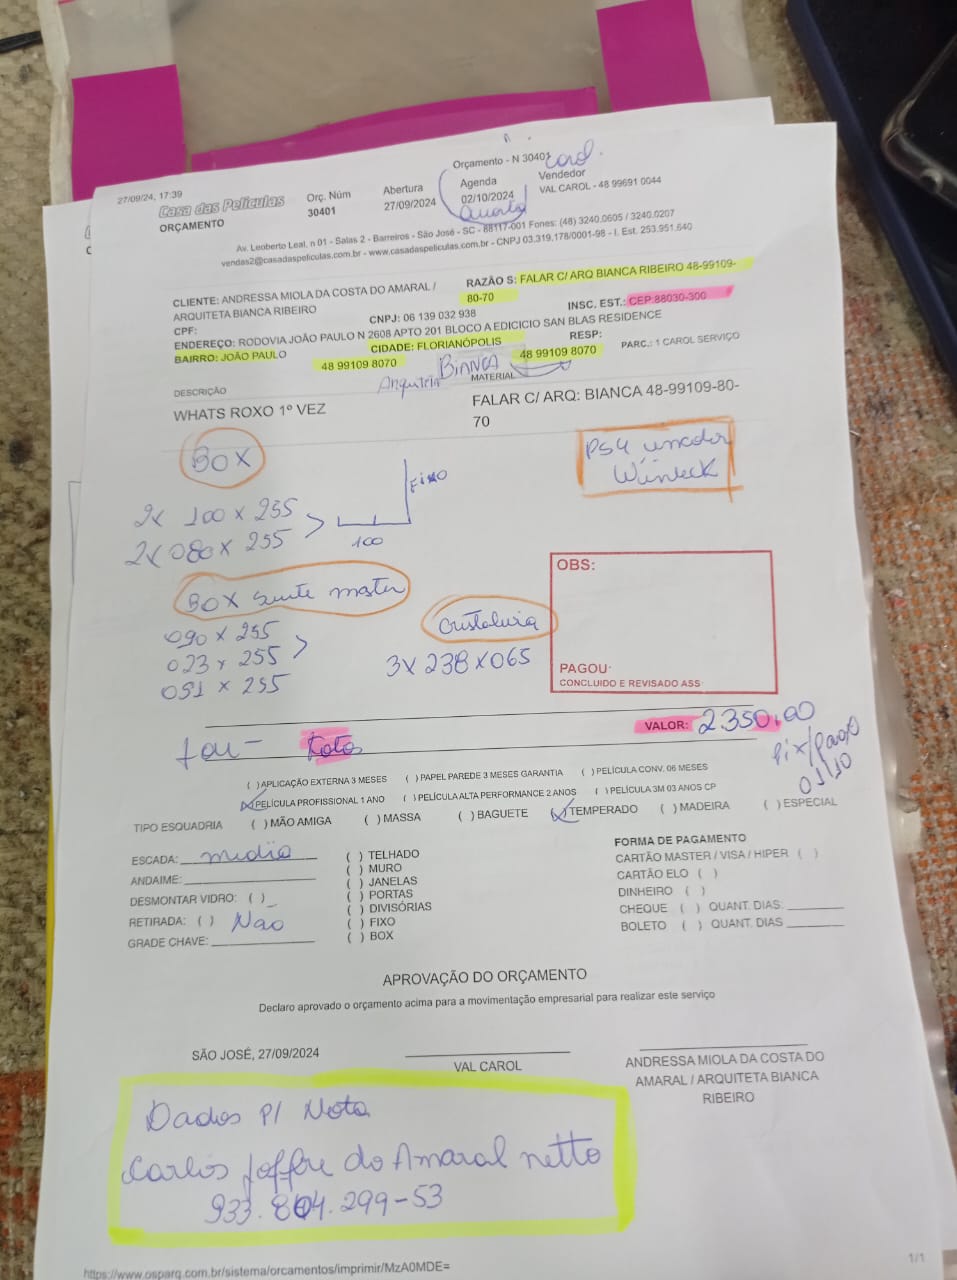 27/09/24, 17:39
Casa das Películas
ORÇAMENTO
Orç. Núm
30401
Abertura
27/09/2024
Orçamento - N 30401
Carol.
Agenda
02/10/2024
Quarta
Vendedor
VAL CAROL - 48 99691 0044
Av. Leoberto Leal, n 01 - Salas 2 - Barreiros - São José - SC - 88117-001 Fones: (48) 3240.0605 / 3240.0207
vendas2@casadaspeliculas.com.br - www.casadaspeliculas.com.br - CNPJ 03.319.178/0001-98 - I. Est. 253.951.640
CLIENTE: ANDRESSA MIOLA DA COSTA DO AMARAL /
ARQUITETA BIANCA RIBEIRO
RAZÃO S: FALAR C/ ARQ BIANCA RIBEIRO 48-99109-
80-70
CPF:
CNPJ: 06 139 032 938
INSC. EST.: CEP:88030-300
ENDEREÇO: RODOVIA JOÃO PAULO N 2608 APTO 201 BLOCO A EDICICIO SAN BLAS RESIDENCE
BAIRRO: JOÃO PAULO
CIDADE: FLORIANÓPOLIS
RESP:
PARC.: 1 CAROL SERVIÇO
48 99109 8070
48 99109 8070
Arquiteta BIANCA
DESCRIÇÃO
MATERIAL
WHATS ROXO 1º VEZ
FALAR C/ ARQ: BIANCA 48-99109-80-
70
BOX
PS4 incolor
Winteck
FIXO
2x 100 x 255
2x 080 x 255
100
BOX suite master
090 x 255
023 x 255
051 x 255
Cristaleira
3x 238 x 065
OBS:
PAGOU:
CONCLUIDO E REVISADO ASS:
VALOR: 2.350,00
Pix/pago
01/10
Fotos
( ) APLICAÇÃO EXTERNA 3 MESES ( ) PAPEL PAREDE 3 MESES GARANTIA ( ) PELÍCULA CONV. 06 MESES
(X) PELÍCULA PROFISSIONAL 1 ANO ( ) PELÍCULA ALTA PERFORMANCE 2 ANOS ( ) PELÍCULA 3M 03 ANOS CP
TIPO ESQUADRIA ( ) MÃO AMIGA ( ) MASSA ( ) BAGUETE (X) TEMPERADO ( ) MADEIRA ( ) ESPECIAL
ESCADA: media
ANDAIME:
DESMONTAR VIDRO: ( )
RETIRADA: ( ) Não
GRADE CHAVE:
( ) TELHADO
( ) MURO
( ) JANELAS
( ) PORTAS
( ) DIVISÓRIAS
( ) FIXO
( ) BOX
FORMA DE PAGAMENTO
CARTÃO MASTER / VISA / HIPER ( )
CARTÃO ELO ( )
DINHEIRO ( )
CHEQUE ( ) QUANT. DIAS:
BOLETO ( ) QUANT. DIAS
APROVAÇÃO DO ORÇAMENTO
Declaro aprovado o orçamento acima para a movimentação empresarial para realizar este serviço
SÃO JOSÉ, 27/09/2024
VAL CAROL
ANDRESSA MIOLA DA COSTA DO
AMARAL / ARQUITETA BIANCA
RIBEIRO
Dados P/ Nota
Carlos Joffre do Amaral netto
933.804.299-53
https://www.osparq.com.br/sistema/orcamentos/imprimir/MzA0MDE=
1/1